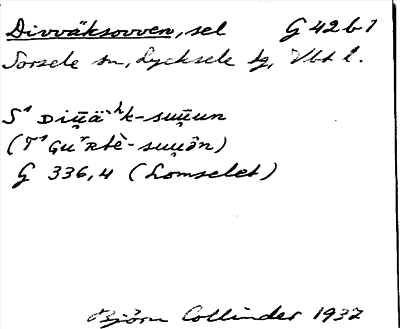 Divväksovven, sel G 42 b 1
Sorsele sn, Lycksele tg, Vbt l.
S¹ Diṷ̄äˋʰk-suṷ̄un
(T¹ Guˊʀtè-suṷōn)
G 336,4 (Lomselet)
Björn Collinder 1937